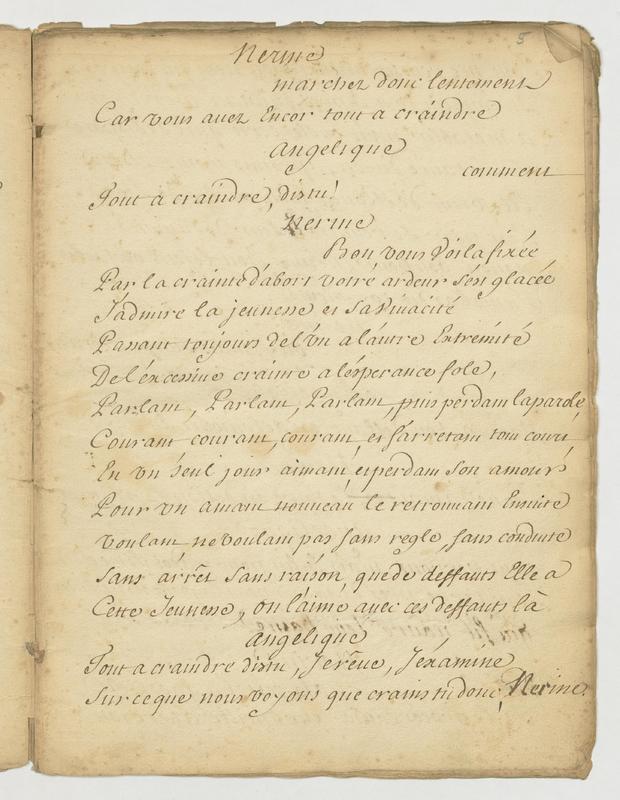 5
Nerine
marchez donc lentement
Car vous auez Encor tout a craindre
Angelique
comment
Tout a craindre, distu!
Nerine
Bon vous voila fixée
Par la crainte d'abort votre ardeur s'est glacée
J'admire la jeunesse et sa viuacité
Passant toujours de l'vn a l'autre Extremité
De l'excessiue crainte a l'esperance fole,
Parlant, Parlant, Parlant, puis perdant la parole,
Courant courant, courant, et s'arretant tout court
En vn seul jour aimant, et perdant son amour
Pour vn amant nouueau le retrouuant Ensuite
voulant, ne voulant pas sans regle, sans conduite
sans arrêt sans raison, que de deffauts Elle a
Cette Jeunesse, on l'aime auec ces deffauts là
Angelique
Tout a craindre distu, Je rêue, J'examine
sur ce que nous voyons que crains tu donc, Nerine